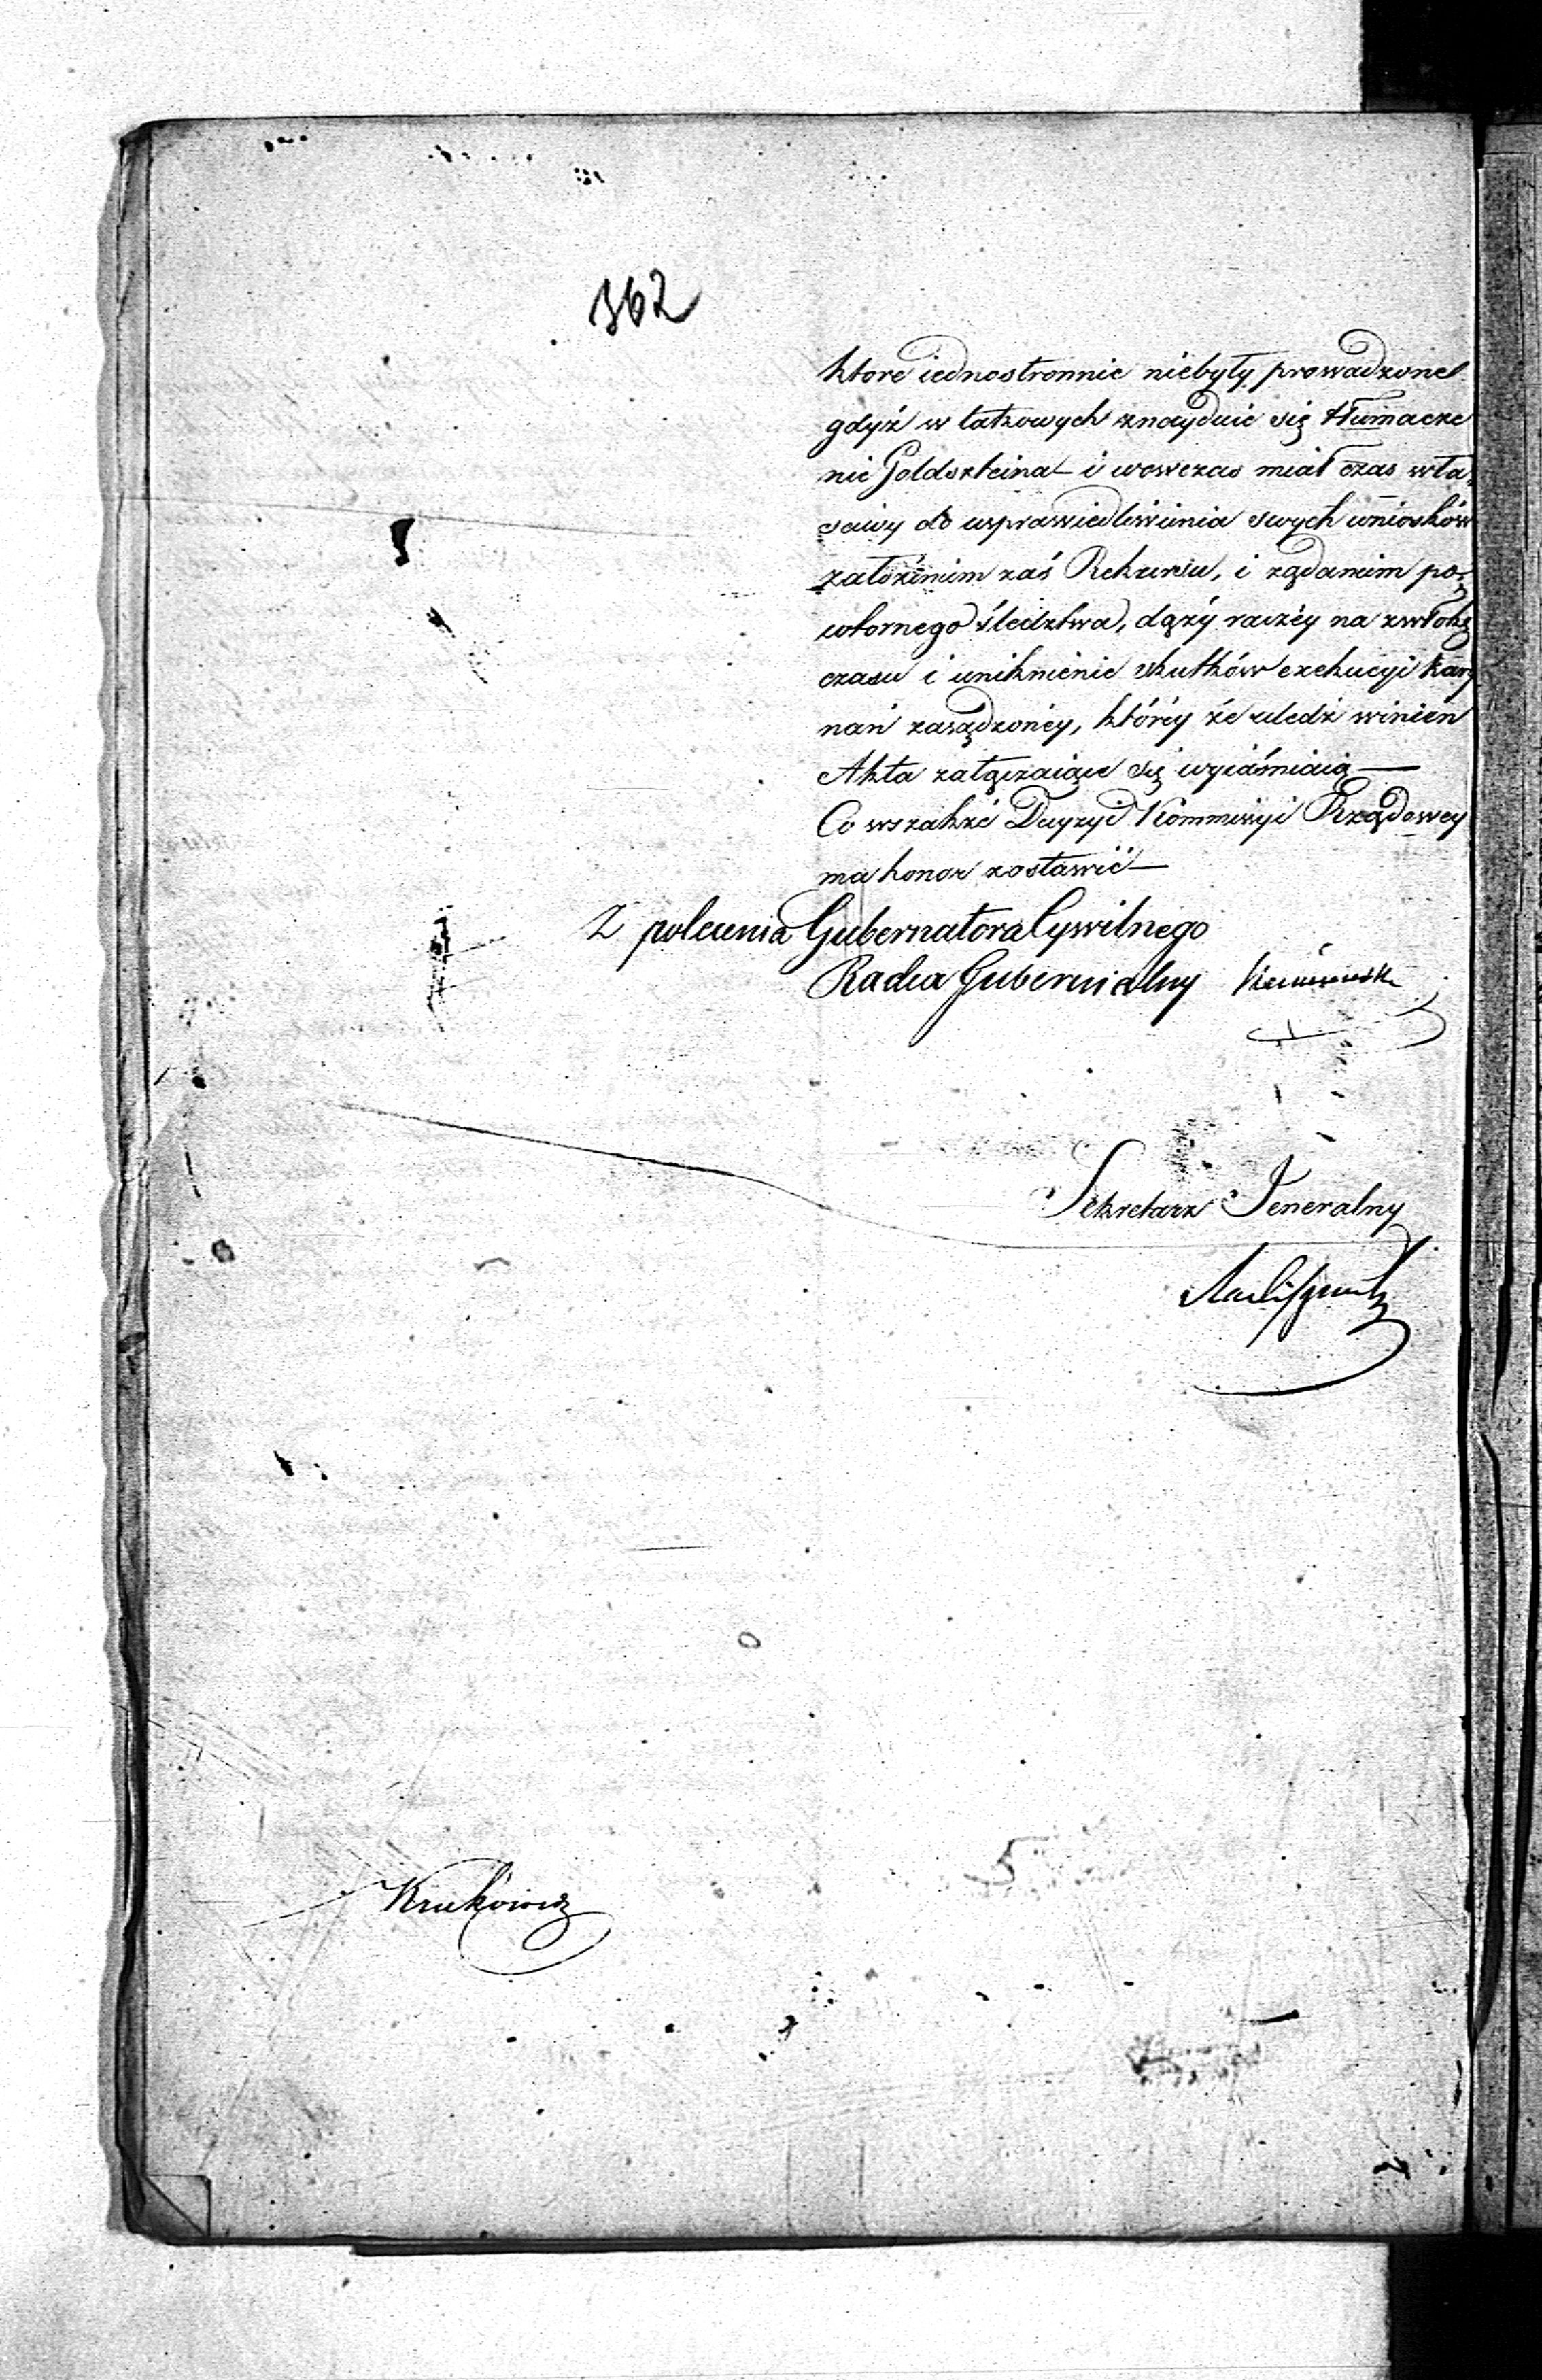 362
ktore iednostronnie niebyły prowadzone
gdyż w takowych znayduie się tłumacze
nie Goldszteina i wowczas miał czas wła,
sciwy do usprawiedliwienia swych wniosków
założeniem zaś Rekursu, i rządaniem po,
wtornego śledztwa, dąży raczéy na zwłokę
czasu i uniknienie skutków exekucyi kary
nań zasądzonéy, któréy że uledz winien
Akta załączaiące się wyiaśniaią —
Co wszakże Decyzyi Kommissyi Rządowey
ma honor zostawić —
Z polecenia Gubernatora Cywilnego
Radca Gubernialny
Sekretarz Jeneralny
Krukowicz
5